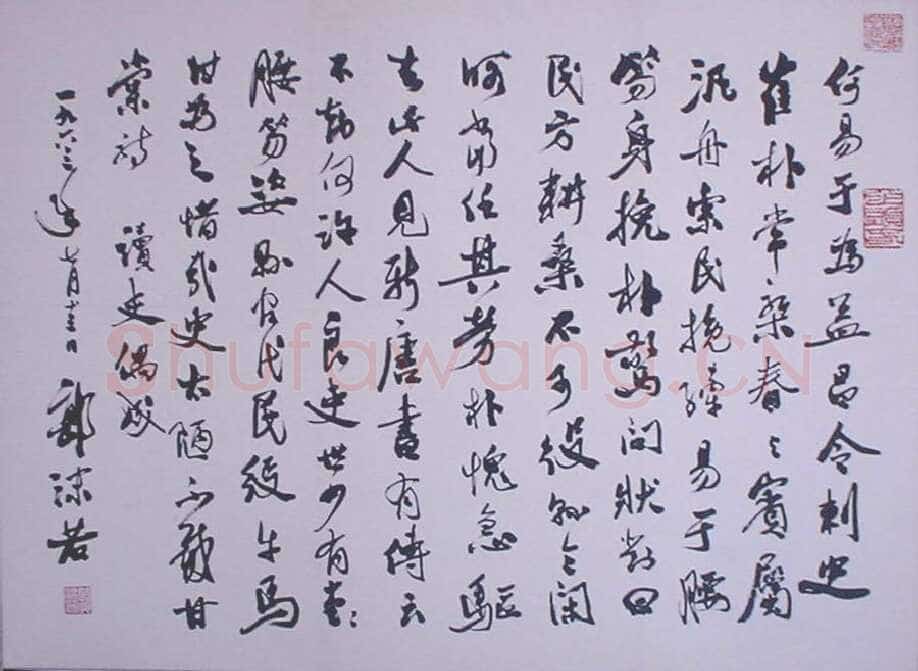 何易于为益昌令刺史
崔朴常乘春与賓屬
泛舟索民挽繂易于腰
笏身挽朴驚问狀對曰
民方耕桑不可役縣令闲
時當任其勞朴愧急驅
去此人見新唐書有傳云
不知何許人良吏世少有堂〻
腰笏姿縣官代民役牛馬
甘为之惜哉史太陋不載甘
棠詩 讀史偶成
一九六三年七月十三日 郭沫若
Shufawang.CN